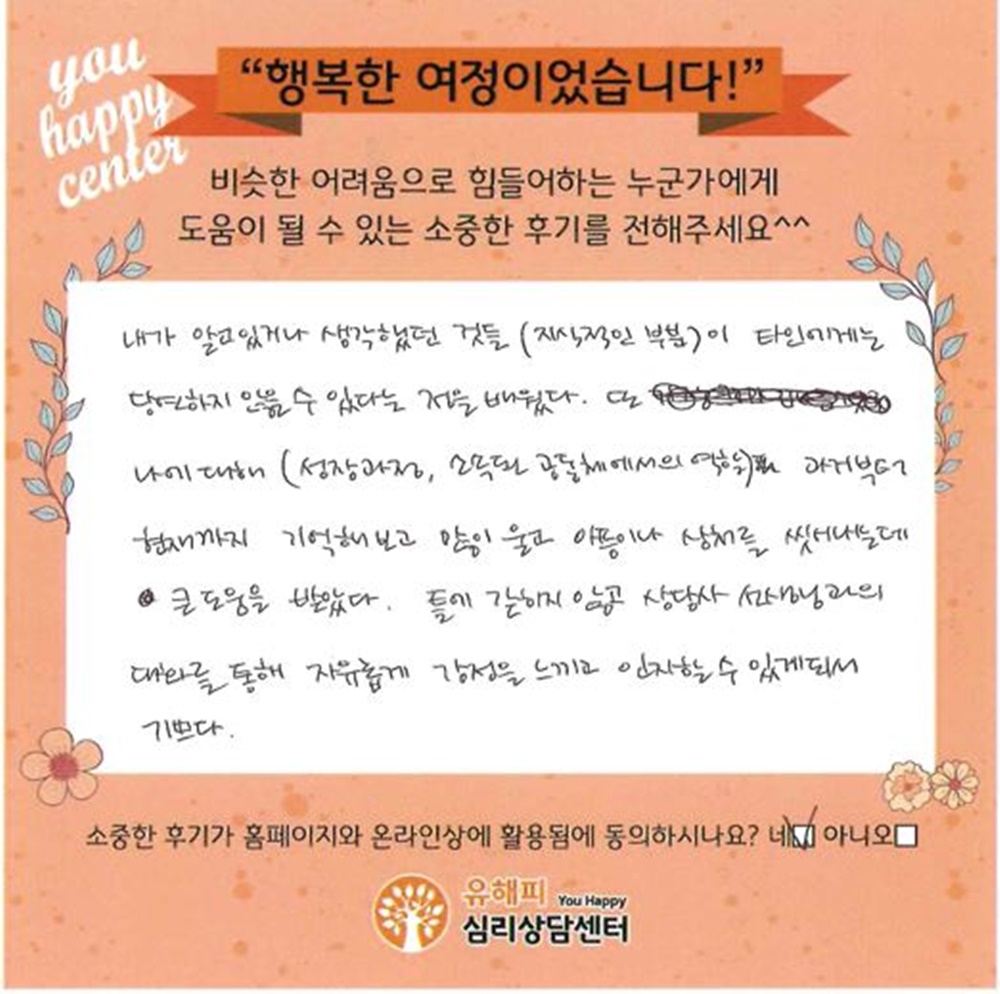 you
happy
center
“행복한 여정이었습니다!”
비슷한 어려움으로 힘들어하는 누군가에게
도움이 될 수 있는 소중한 후기를 전해주세요^^
내가 알고있거나 생각했던 것들 (지식적인 부분)이 타인에게는
당연하지 않을 수 있다는 점을 배웠다. 또
나에 대해 (성장과정, 소속된 공동체에서의 역할) 과거부터
현재까지 기억해보고 많이 울고 아픔이나 상처를 씻어내는데
큰 도움을 받았다. 틀에 갇히지 않고 상담사 선생님과의
대화를 통해 자유롭게 감정을 느끼고 인지할 수 있게되서
기쁘다.
소중한 후기가 홈페이지와 온라인상에 활용됨에 동의하시나요? 네 아니오
유해피 You Happy
심리상담센터